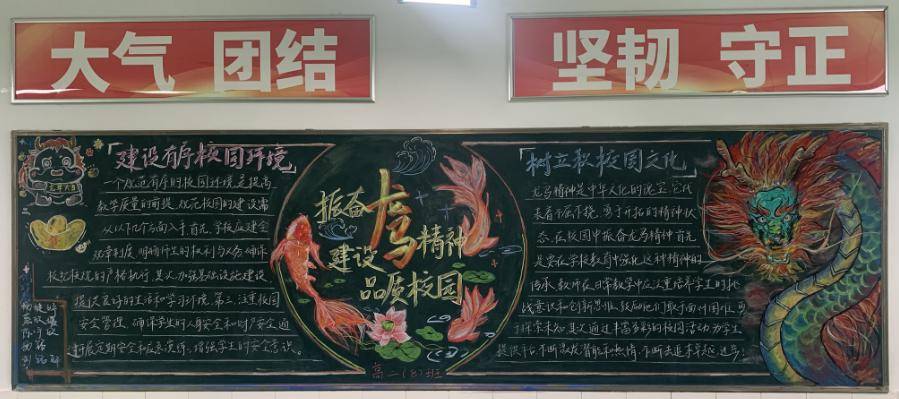 大气 团结
坚韧 守正
「建设有序校园环境」
一个规范有序的校园环境是提高
教学质量的前提，规范校园的建设需
从以下几方面入手首先，学校应建全
规章制度，明确师生的权利与义务，确保
校纪校规的严格执行，其次，加强基础设施建设，
提供良好的生活和学习环境，第三，注重校园
安全管理，确保学生的人身安全和财产安全，通
过开展定期安全和应急演练，增强学生的安全意识。
振奋龙马精神
建设品质校园
高二(8)班
「树立秋校园文化」
龙马精神是中华文化的瑰宝，它代
表着不屈不挠、勇于开拓的精神状
态，在校园中振奋龙马精神，首先
是要在学校教育中强化这种精神的
传承，教师在日常教学中应注重培养学生的挑
战意识和创新思维，鼓励他们敢于面对困难，勇
于探索未知，其次通过丰富多彩的校园活动，为学生
提供平台，不断激发智能和热情，不断去追求卓越、进步！